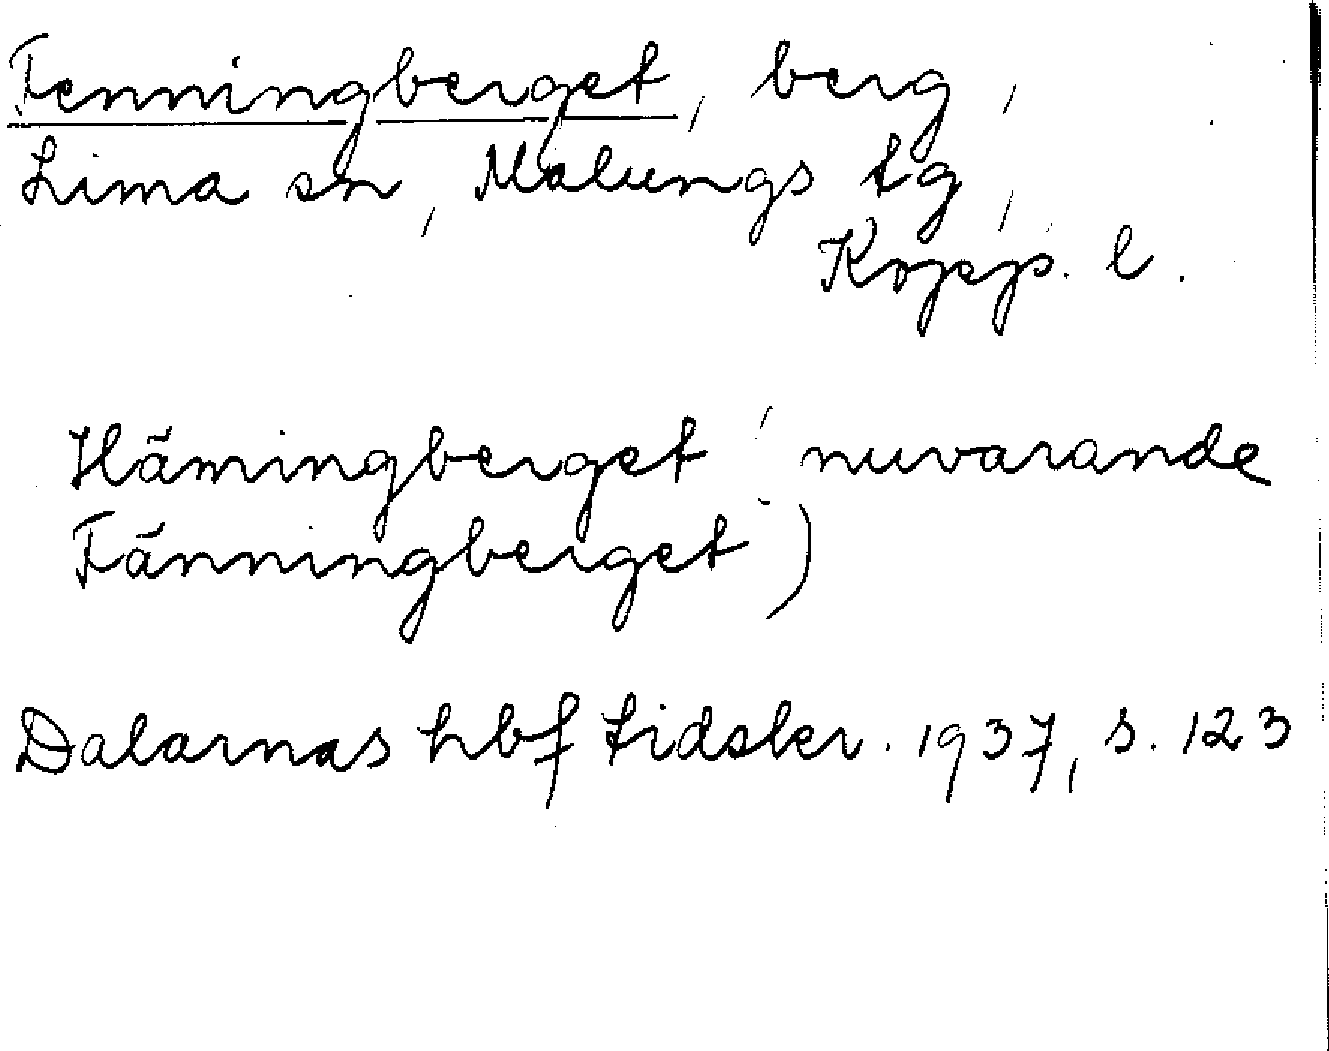 Fenningberget, berg,
Lima sn, Malungs tg,
Kopp. l.
Hämingberget (nuvarande
Fänningberget)
Dalarnas hbf tidskr. 1937, s. 123